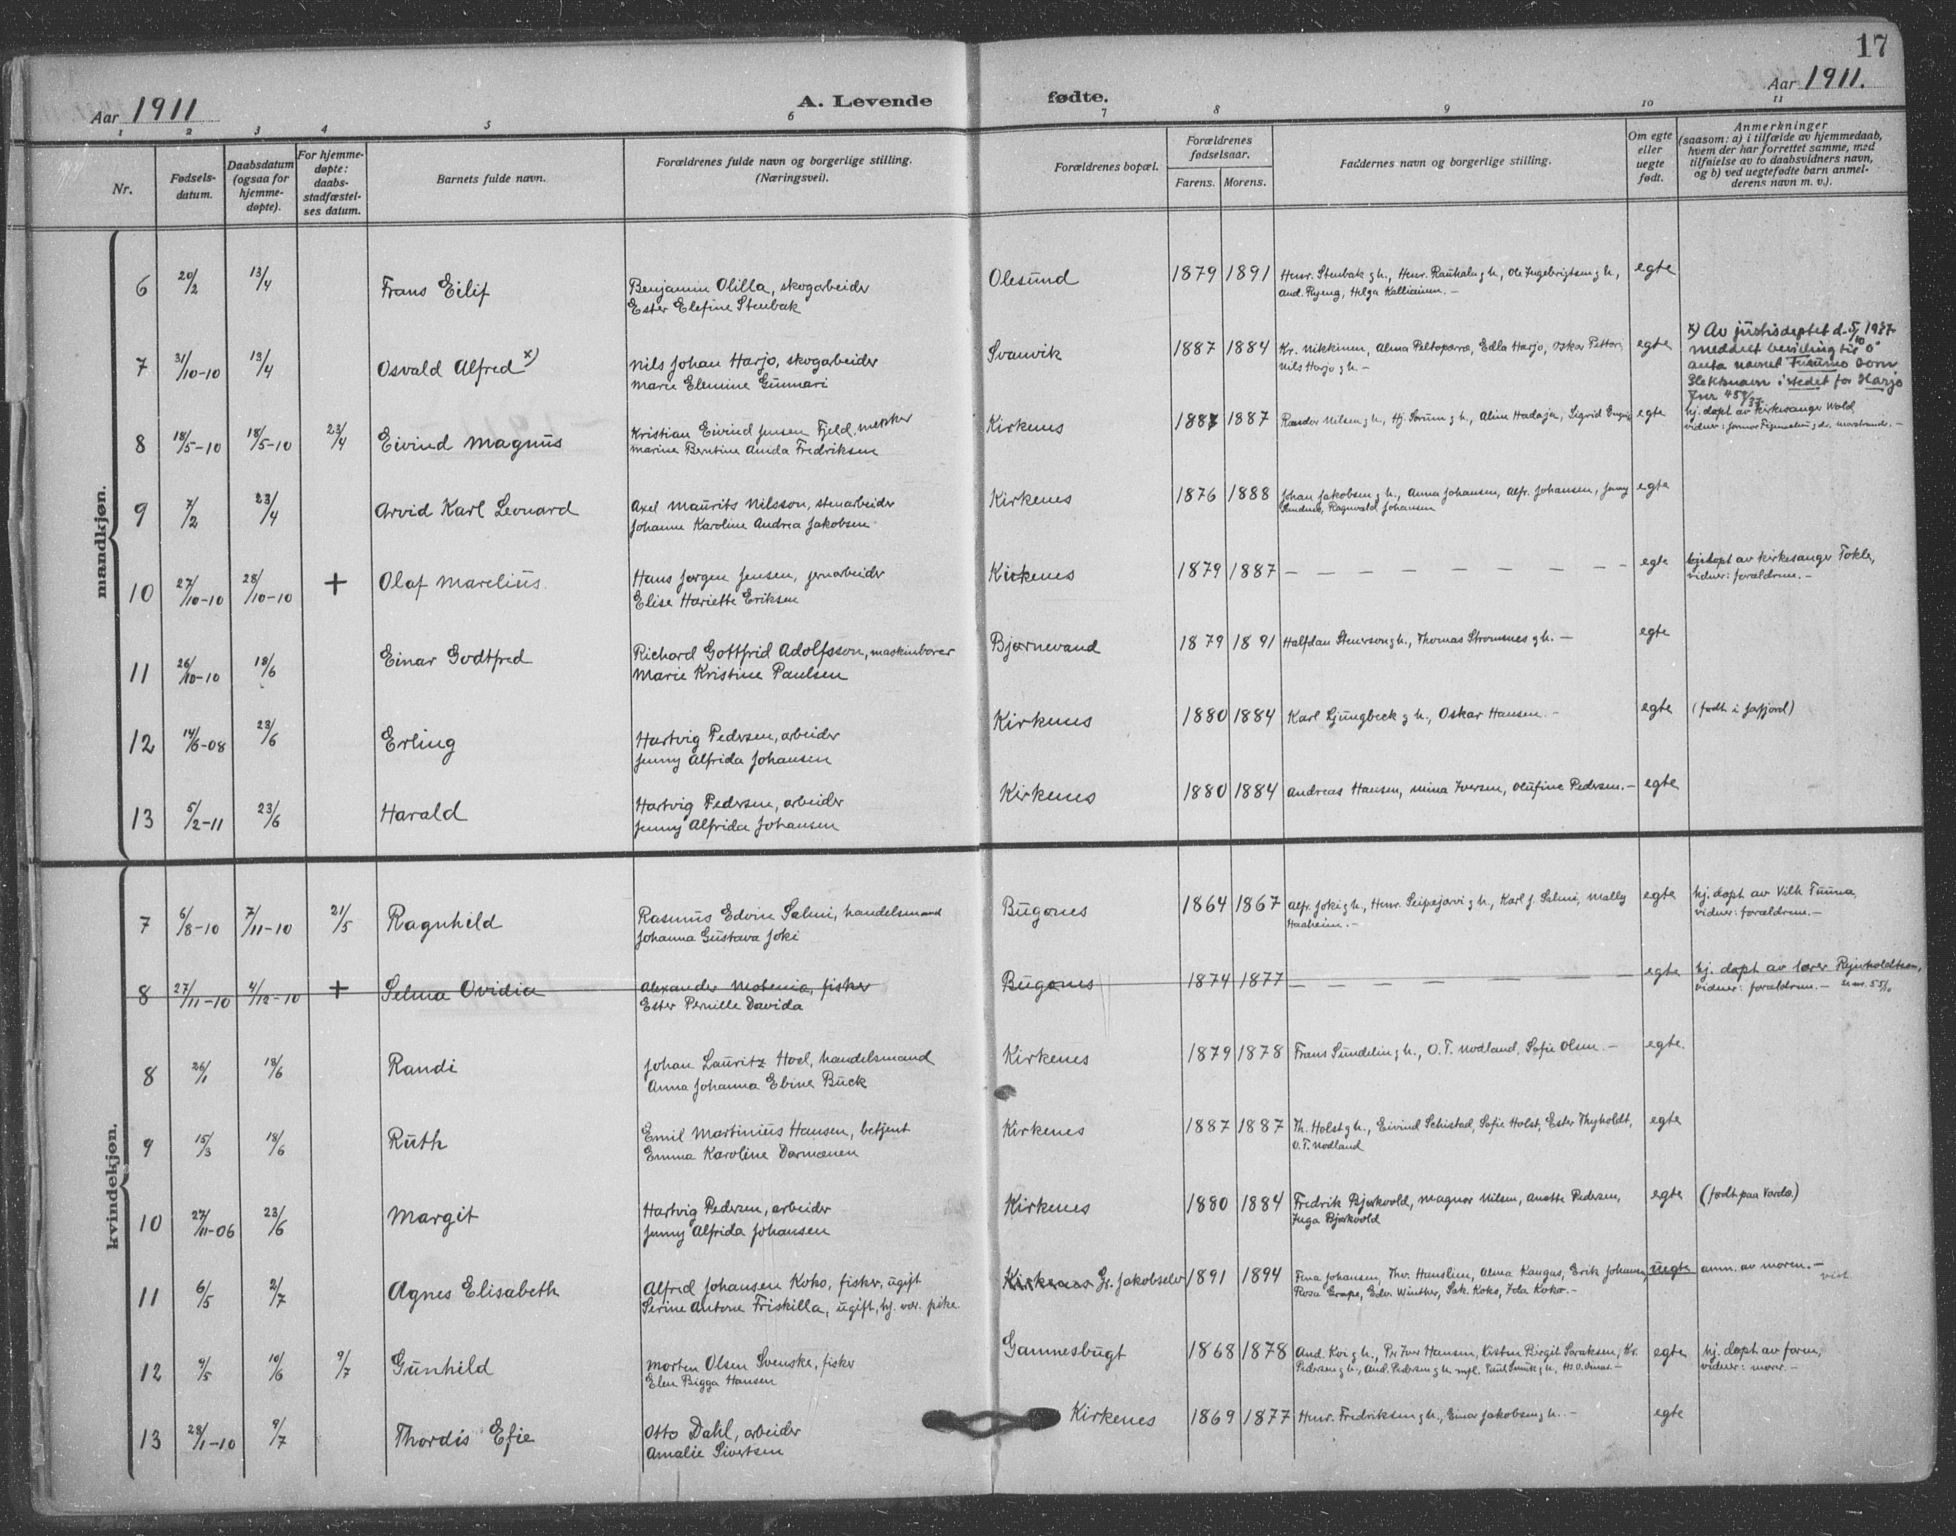 17
Aar 1911
A. Levende fødte.
Aar 1911.
1 2 3 4 5 6 7 8 9 10 11
Nr.
Fødsels-
datum.
Daabsdatum
(ogsaa for
hjemme-
døpte).
For hjemme-
døpte:
daabs-
stadfæstel-
ses datum.
Barnets fulde navn.
Forældrenes fulde navn og borgerlige stilling.
(Næringsvei).
Forældrenes bopæl.
Forældrenes
fødselsaar.
Farens. Morens.
Faddernes navn og borgerlige stilling.
Om egte
eller
uegte
født.
Anmerkninger
(saasom: a) i tilfælde av hjemmedaab,
hvem der har forrettet samme, med
tilføielse av to daabsvidners navn,
og b) ved uegtefødte barn anmel-
derens navn m. v.).
mandkjøn.
6 20/2 13/4 Frans Eilif
Benjamin Olilla, skogarbeider
Ester Elefine Stenbak
Olesund 1879 1891
Henr. Stenbak g h., Henr. Rauhala g h., Ole Ingebrigtsen g h.,
And. Ryeng, Helga Kalliainen. –
egte
7 31/10-10 13/4 Osvald Alfred x)
Nils Johan Harjo, skogarbeider
Marie Elemine Gunnari
Svanvik 1887 1884
Kr. Nikkinen, Alma Peltoparra, Edla Harjo, Oskar Pettori
Nils Harjo g h. –
egte
x) Av justisdeptet d. 5/10 1937
meddelt bevilling til å
anta navnet Furumo som
slektsnavn istedet for Harjo
Jnr 458/37
8 18/5-10 18/5-10 23/4 Eivind Magnus
Kristian Eivind Jensen Fjeld,
Marine Berntine Amda Fredriksen
Kirkenes 1887 1887
Nilsen g h., Hj. Sorum g h., Aline Hadaja, Sigrid
egte
hj. døpt av kirkesanger Wold,
vidner:
9 7/2 23/4 Arvid Karl Leonard
Axel Maurits Nilsson, stenarbeider
Johanne Karoline Andrea Jakobsen
Kirkenes 1876 1888
Johan Jakobsen g h., Anna Johansen, Alfr. Johansen, Jenny
Ragnvald Johansen
egte
10 27/10-10 28/10-10 + Olaf Marelius
Hans Jørgen Jensen, jernarbeider
Elise Hariette Eriksen
Kirkenes 1879 1887 – – – – – – – –
egte
hj. døpt av kirkesanger Tokle,
vidner: forældrene. –
11 26/10-10 18/6 Einar Godtfred
Richard Gottfrid Adolfsson, maskinborer
Marie Kristine Paulsen
Bjørnevand 1879 1891
Halfdan Stenersen g h., Thomas Strømsnes g h. –
egte
12 14/6-08 23/6 Erling
Hartvig Pedersen, arbeider
Jenny Alfrida Johansen
Kirkenes 1880 1884
Karl Ljungbeck g h., Oskar Hansen –
egte
(født i Jarfjord)
13 5/2-11 23/6 Harald
Hartvig Pedersen, arbeider
Jenny Alfrida Johansen
Kirkenes 1880 1884
Andreas Hansen, Mina Iversen, Olufine Pedersen. –
egte
kvindekjøn.
7 6/8-10 7/11-10 21/5 Ragnhild
Rasmus Edvin Salmi, handelsmand
Johanna Gustava Joki
Bugønes 1864 1867
Alfr. Joki g h., Henr. Seipæjærvi g h., Karl J. Salmi, Mally
Haaheim. –
egte
hj. døpt av Vilh Tuuna,
vidner: forældrene. –
8 27/11-10 4/12-10 + Selma Ovidia
Alexander Motenia, fisker
Ester Pernille Davida
Bugønes 1874 1877 – – – – – – – –
egte
hj. døpt av lærer
vidner: forældrene. –
8 26/1 18/6 Randi
Johan Lauritz Hoel, handelsmand
Anna Johanna Ebine Buck
Kirkenes 1879 1878
Frans Sundelin g h., O. T. Nodland, Sofie Olsen. –
egte.
9 15/3 18/6 Ruth
Emil Martinius Hansen, betjent
Emma Karoline Darmænen
Kirkenes 1887 1887
Th. Holst g h., Eivind Schistad, Sofie Holst, Ester Thyholdt,
O. T. Nodland
egte
10 27/11-06 23/6 Margit
Hartvig Pedersen, arbeider
Jenny Alfrida Johansen
Kirkenes 1880 1884
Fredrik Bjørkvold, Magnor Nilsen, Anette Pedersen,
Inga Bjørkvold
egte
(født paa Vardø)
11 6/5 2/7 Agnes Elisabeth
Alfred Johansen Koko, fisker, ugift
Serine Antone Friskilla, ugift, hj. vær. pike.
Kirkenes Gr. Jakobselv 1891 1894
Fina Johansen, Thv. Hanslien, Alma Kangas, Erik Johansen,
Rosa Grape, Edv. Winther, Sak. Koko, Ida Koko. –
uegte
anm. av moren. –
12 9/5 10/6 9/7 Gunhild
Morten Olsen Svenske, fisker
Elen Bigga Hansen
Gamnesbugt 1868 1878
And. Kor g h., Per Iver Hansen, Kisten Birgit Saraksen, Kr.
Pedersen g h., And. Pedersen g h.
egte
hj. døpt av
vidner:
13 28/1-10 9/7 Thordis Efie
Otto Dahl, arbeider
Amalie Sivertsen
Kirkenes 1869 1877
Henr. Fredriksen g h., Einar Jakobsen g h. –
egte